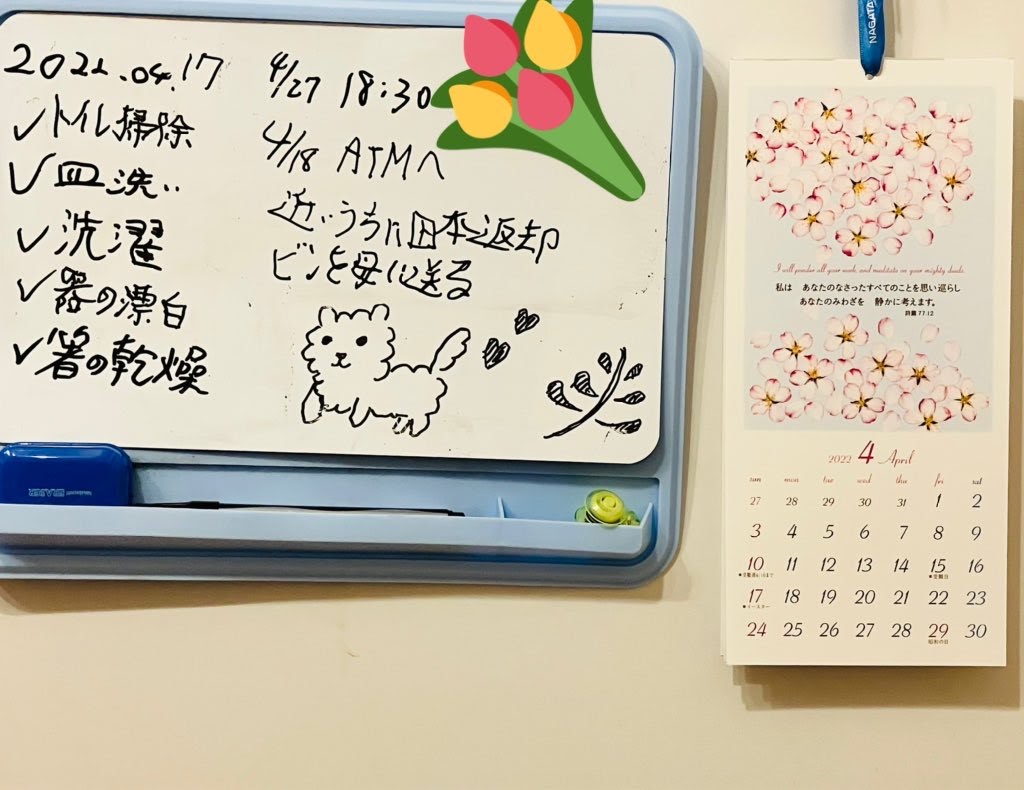 2022.04.17
✓トイレ掃除
✓皿洗い
✓洗濯
✓器の漂白
✓箸の乾燥
4/27 18:30
4/18 ATMへ
近いうちに図本返却
ビンを母に送る
ERASER
NAGATA
I will ponder all your work, and meditate on your mighty deeds.
私は あなたのなさったすべてのことを思い巡らし
あなたのみわざを 静かに考えます。
詩篇 77.12
2022 4 April
sun mon tue wed thu fri sat
27 28 29 30 31 1 2
3 4 5 6 7 8 9
10 11 12 13 14 15 16
●受難週4/16まで ●受難日
17 18 19 20 21 22 23
●イースター
24 25 26 27 28 29 30
昭和の日